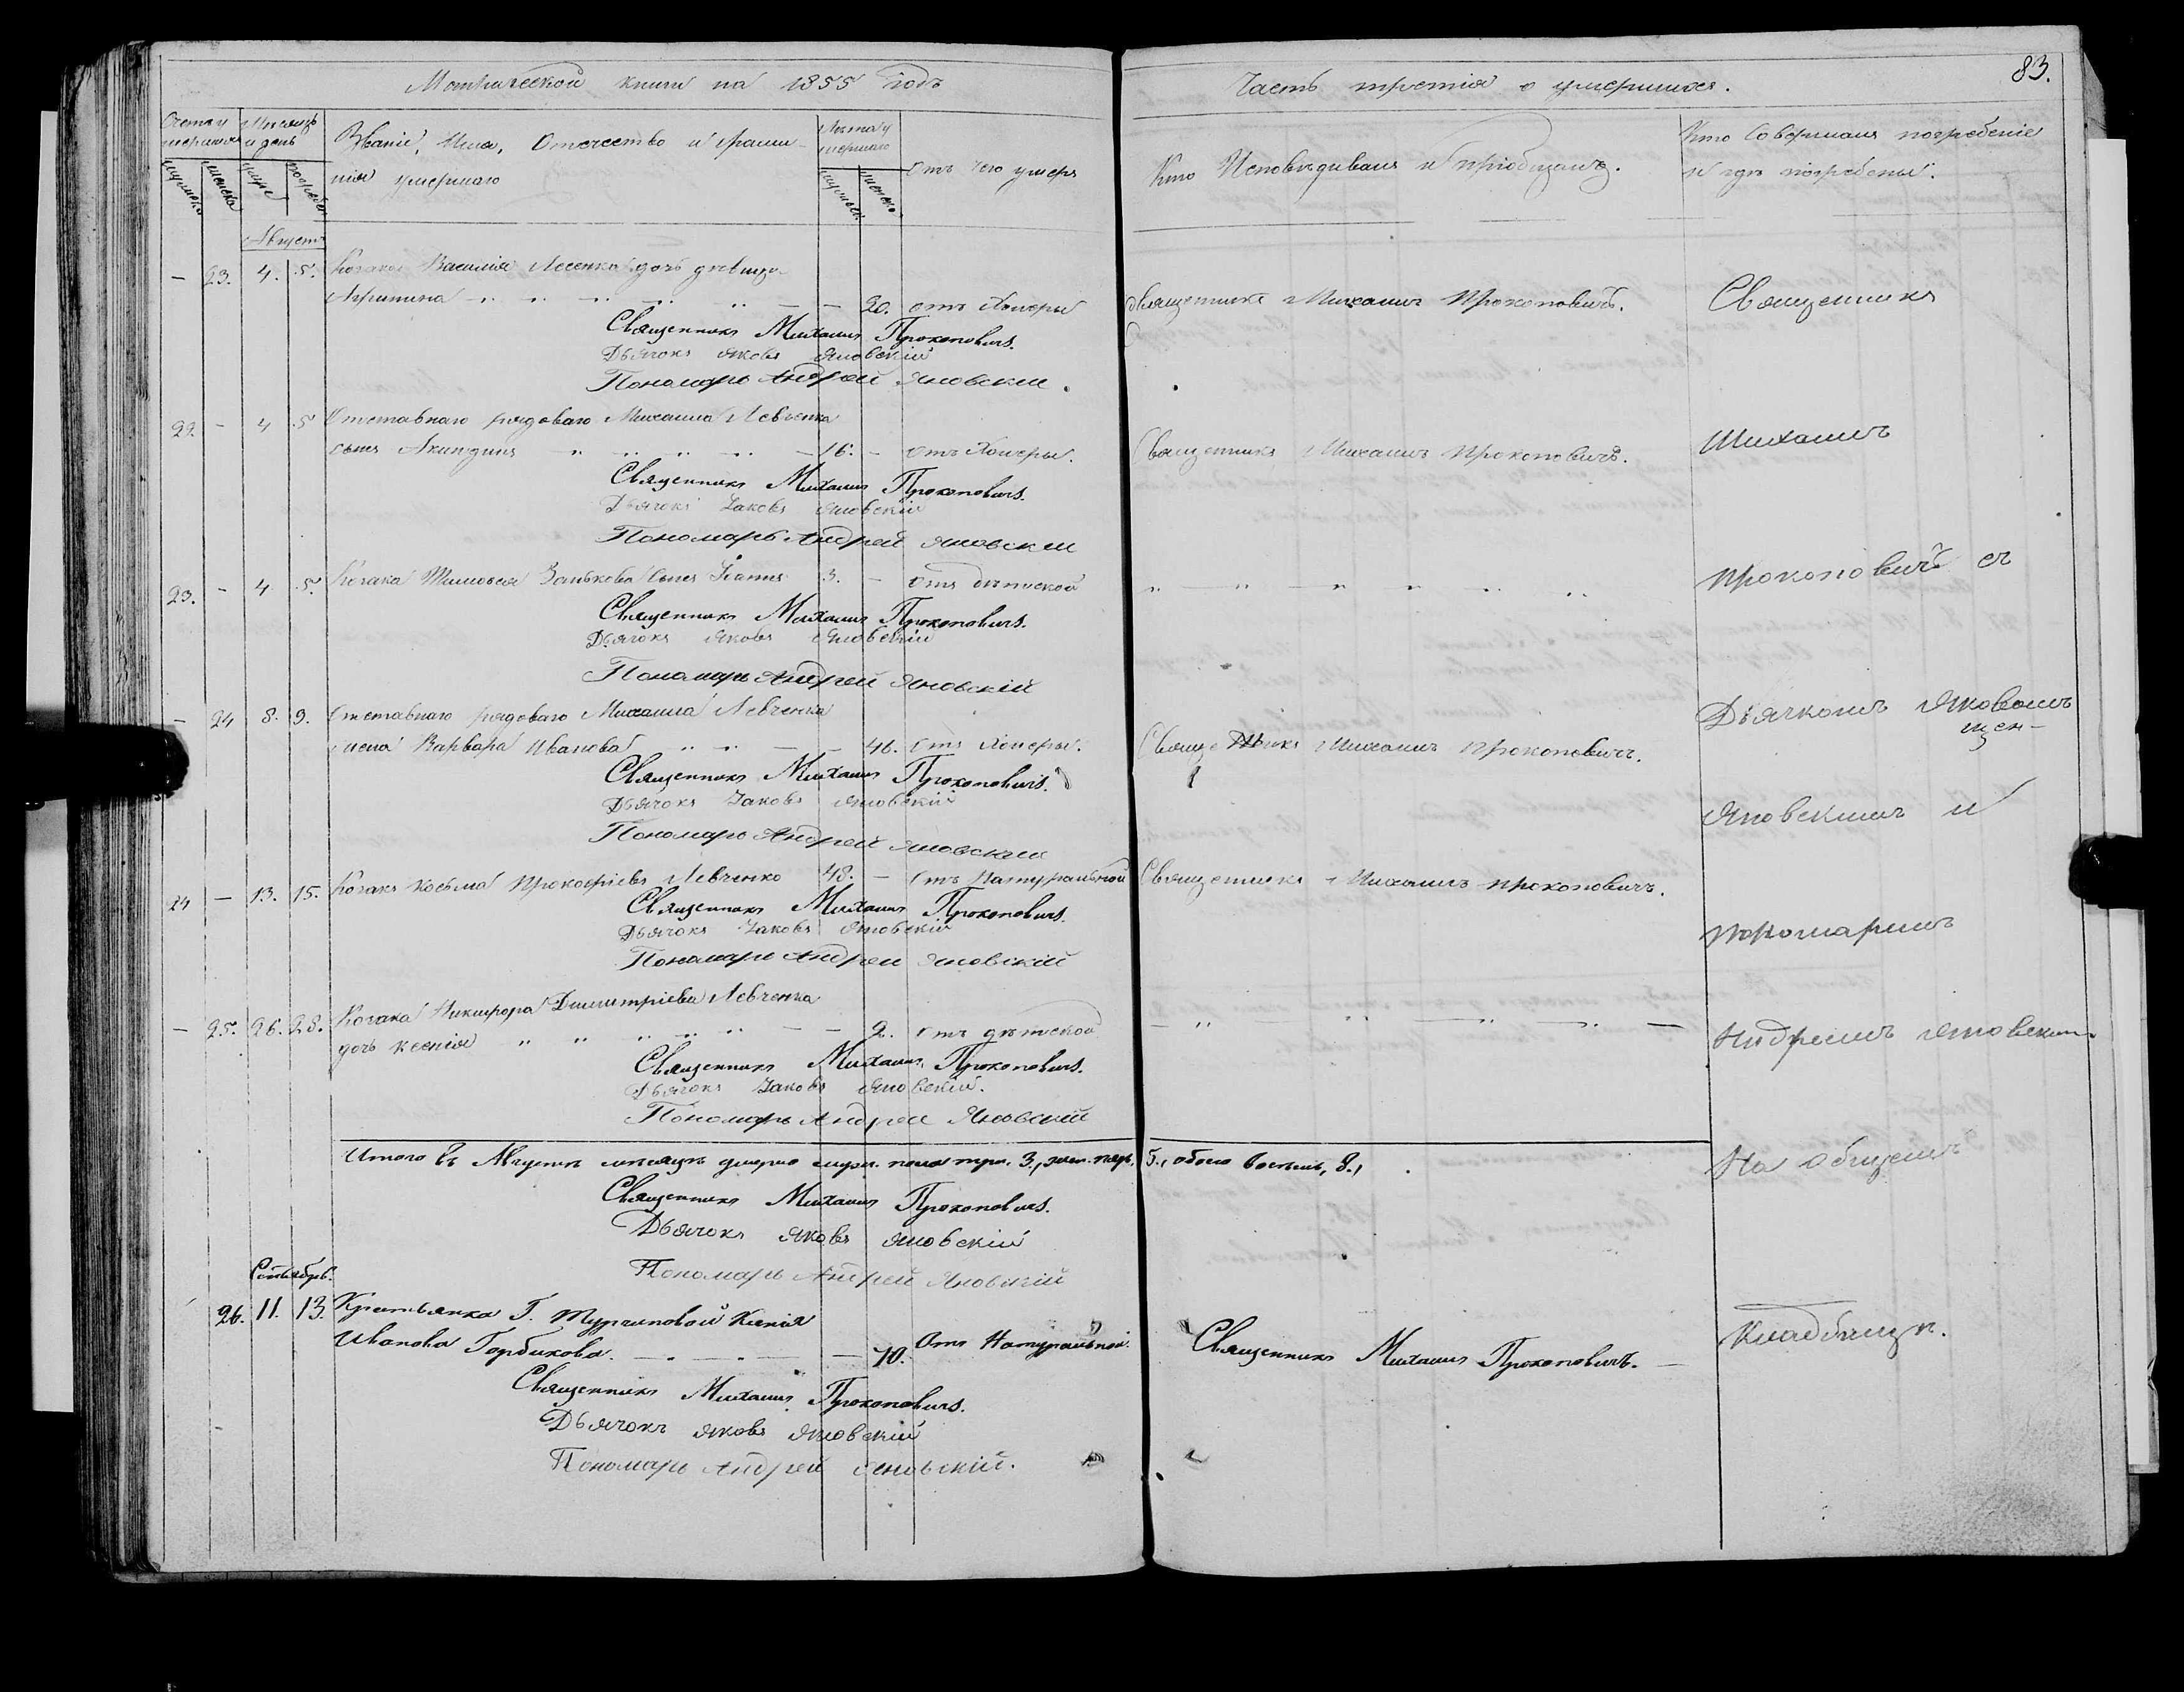 Метрической книги на 1855 годъ
Часть третія о умершихъ.
83.
Счетъ умершихъ
Мѣсяцъ и день
Званіе, Имя, Отчество и фамилія умершаго
Лѣта умершаго
Отъ чего умеръ
Кто Исповѣдывалъ и пріобщалъ.
Кто Совершалъ погребеніе и гдѣ погребены.
мужеска
женска
мужеск.
женск.
Августъ
— 23. 4. 5. Козака Василія Лесенка дочь дѣвица
Агрипина — — 20. отъ Холеры Священникъ Михаилъ Прокоповичъ.
Священникъ Михаилъ Прокоповичъ.
Дьячокъ Яковъ Яновскій
Пономарь Андрей Яновскій.
22. — 4 5 Отставнаго рядоваго Михаила Левченка
сынъ Акиндинъ — 16. — отъ Холеры. Священникъ Михаилъ Прокоповичъ.
Священникъ Михаилъ Прокоповичъ.
Дьячокъ Іаковъ Яновскій
Пономарь Андрей Яновскій
23. — 4 5. Козака Тимофея Занькова сынъ Іоаннъ 3. — отъ дѣтской
Священникъ Михаилъ Прокоповичъ.
Дьячокъ Яковъ Яновскій
Пономарь Андрей Яновскій
— 24 8. 9. Отставнаго рядоваго Михаила Левченка
жена Варвара Иванова — — 46. Отъ Холеры. Священникъ Михаилъ Прокоповичъ.
Священникъ Михаилъ Прокоповичъ.
Дьячокъ Іаковъ Яновскій
Пономарь Андрей Яновскій
24 — 13. 15. Козакъ Косьма Прокофіевъ Левченко 48. — Отъ Натуральной Священникъ Михаилъ Прокоповичъ.
Священникъ Михаилъ Прокоповичъ.
Дьячокъ Іаковъ Яновскій
Пономарь Андрей Яновскій
— 25. 26. 28. Козака Никифора Димитріева Левченка
дочь Ксенія — — 2. Отъ дѣтской
Священникъ Михаилъ Прокоповичъ.
Дьячокъ Іаковъ Яновскій.
Пономарь Андрей Яновскій
Итого въ Августѣ мѣсяцѣ умерло муж. пола три, 3, жен. пять, 5., обоего восемь, 8.,
Священникъ Михаилъ Прокоповичъ.
Дьячокъ Яковъ Яновскій
Пономарь Андрей Яновскій
Сентябрь.
26. 11. 13. Крестьянка Г. Турчиновой Ксенія
Иванова Горбикова. — — 70. Отъ Натуральной. Священникъ Михаилъ Прокоповичъ. —
Священникъ Михаилъ Прокоповичъ.
Дьячокъ Яковъ Яновскій
Пономарь Андрей Яновскій.
Священникъ
Михаилъ
Прокоповичъ съ
Дьячкомъ Яковомъ
Яновскимъ и
пономаремъ
Андреемъ Яновским.
На общемъ
Кладбищѣ.